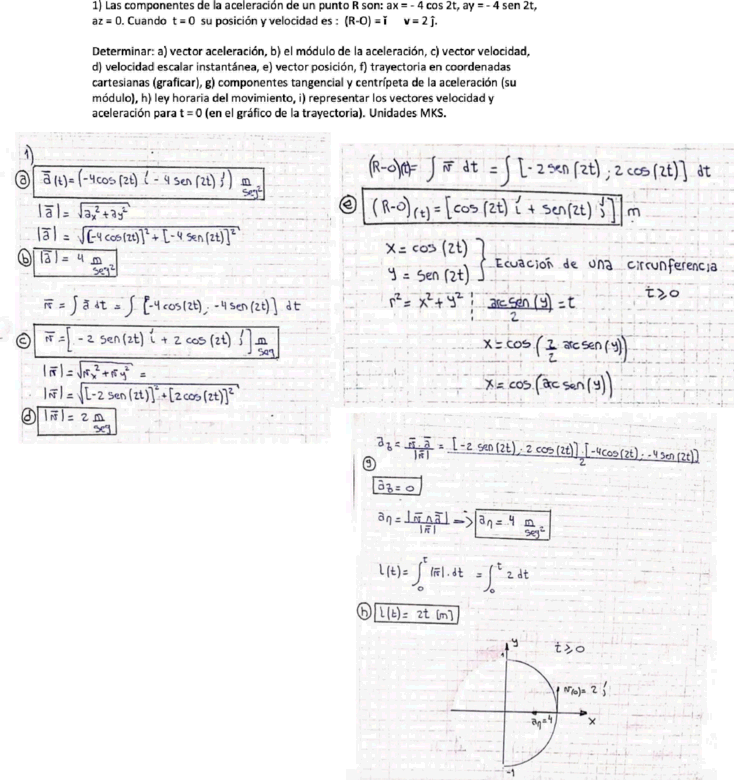 1) Las componentes de la aceleración de un punto R son: ax = - 4 cos 2t, ay = - 4 sen 2t,
az = 0. Cuando t = 0 su posición y velocidad es : (R-O) = ǐ v = 2 ĵ.
Determinar: a) vector aceleración, b) el módulo de la aceleración, c) vector velocidad,
d) velocidad escalar instantánea, e) vector posición, f) trayectoria en coordenadas
cartesianas (graficar), g) componentes tangencial y centrípeta de la aceleración (su
módulo), h) ley horaria del movimiento, i) representar los vectores velocidad y
aceleración para t = 0 (en el gráfico de la trayectoria). Unidades MKS.
1)
ⓐ a̅(t)=(-4cos(2t) i - 4 sen(2t) j) m/seg²
|a̅| = √(ax²+ay²)
|a̅| = √([-4 cos(2t)]² + [-4 sen(2t)]²)
ⓑ |a̅| = 4 m/seg²
v̅ = ∫ a̅ dt = ∫ [-4cos(2t); -4 sen(2t)] dt
ⓒ v̅ = [-2 sen(2t) i + 2 cos(2t) j] m/seg
|v̅| = √(vx²+vy²) =
|v̅| = √([-2 sen(2t)]² + [2cos(2t)]²)
ⓓ |v̅| = 2 m/seg
(R-O)(t)= ∫ v̅ dt = ∫ [-2sen(2t); 2cos(2t)] dt
ⓔ (R-O)(t) = [cos(2t) i + sen(2t) j] m
x = cos(2t)
y = sen(2t)
Ecuación de una circunferencia
t⩾0
r² = x² + y²
arcsen(y)/2 = t
x = cos(2/2 arcsen(y))
x = cos(arcsen(y))
ⓖ a𝗓 = v̅ . a̅/|v̅| = [-2 sen(2t); 2 cos(2t)].[-4cos(2t); -4 sen(2t)]/2
a𝗓 = 0
an = |v̅ ∧ a̅|/|v̅| => an = 4 m/seg²
l(t) = ∫₀ᵗ |v̅|. dt = ∫₀ᵗ 2 dt
ⓗ l(t) = 2t [m]
y
t⩾0
1
v(0)= 2 j
an=4
x
-1